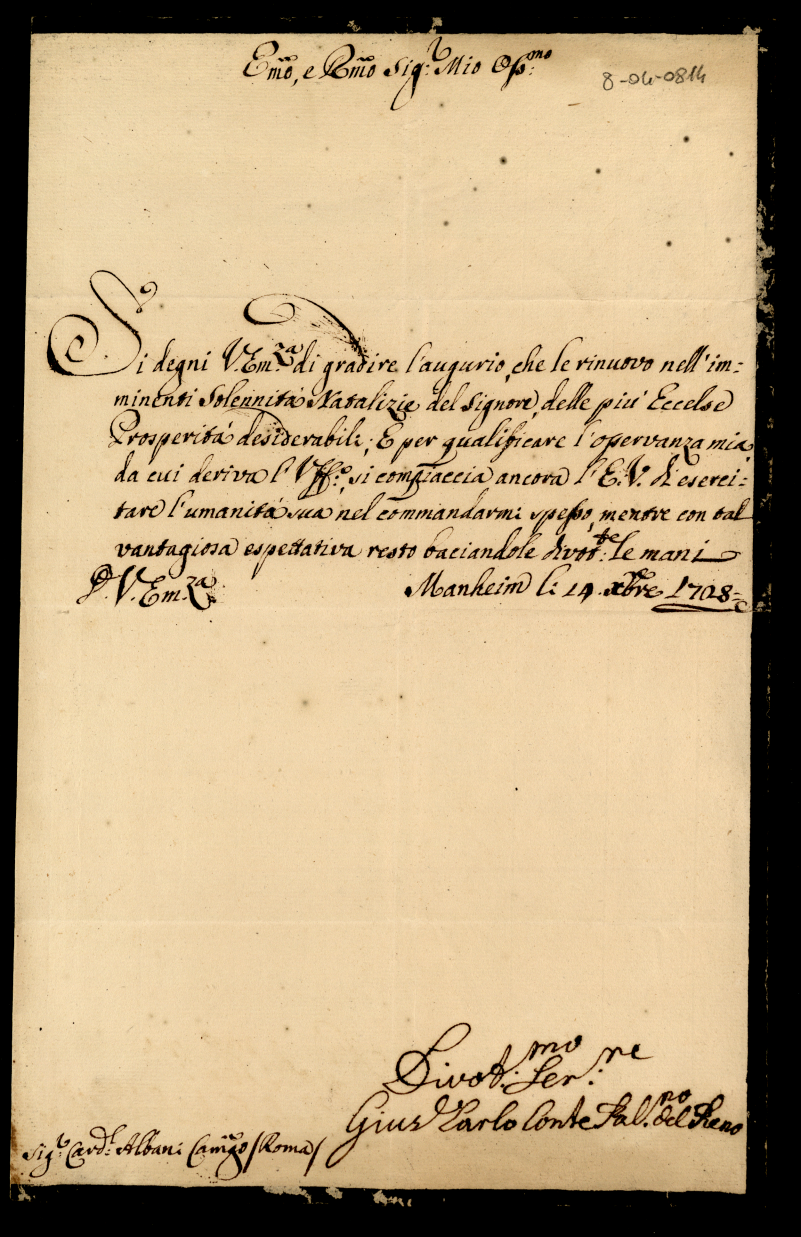 Emo, e Rmo Sig.r Mio Oss.mo
8-04-0814
Si degni V. Em.za di gradire l'augurio, che le rinuovo nell' im=
minenti Solennità Natalizie del Signore, delle più Eccelse
Prosperità desiderabili; E per qualificare l'osservanza mia,
da cui deriva l' Uff.o, si compiaccia ancora l'E.V. di eserci=
tare l'umanità sua nel commandarmi spesso, mentre con tal
vantagiosa espettativa resto baciandole divot.te le mani
D. V. Em.za Manheim li 14 Xbre 1728=
Divot.mo Ser.re
Gius. Carlo Conte Pal.no del Reno
Sig.r Card.l Albani Camgo /Roma/